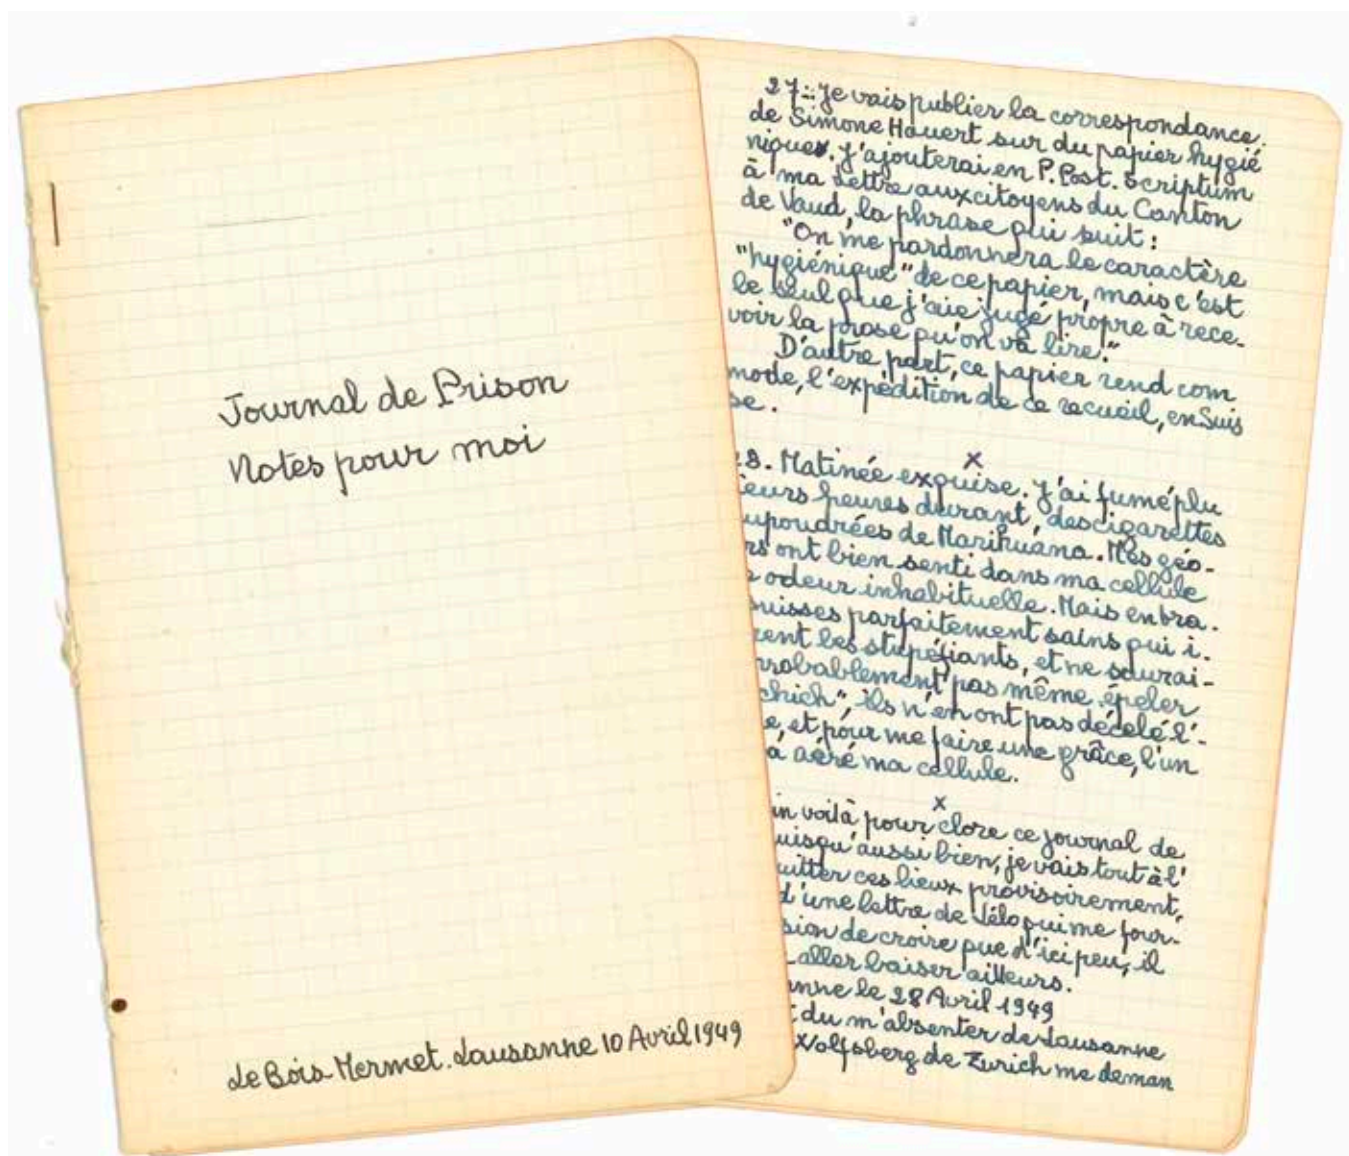 Journal de Prison
Notes pour moi
Le Bois Mermet. Lausanne 10 Avril 1949
27.- Je vais publier la correspondance
de Simone Hauert sur du papier hygié
nique. J'ajouterai en P. Post. Scriptum
à ma Lettre aux citoyens du Canton
de Vaud, la phrase qui suit :
"On me pardonnera le caractère
"hygiénique" de ce papier, mais c'est
le seul que j'aie jugé propre à rece-
voir la prose qu'on va lire."
D'autre part, ce papier rend com
mode, l'expédition de ce recueil, en Suis
se.
x
28. Matinée exquise. J'ai fumé plu
eurs heures durant, des cigarettes
upoudrées de Marihuana. Mes geô-
rs ont bien senti dans ma cellule
odeur inhabituelle. Mais en bra-
suisses parfaitement sains qui i-
rent les stupéfiants, et ne saurai-
probablement pas même épeler
chich", ils n'en ont pas décelé l'-
e, et pour me faire une grâce, l'un
a aéré ma cellule.
x
in voilà pour clore ce journal de
uisqu'aussi bien, je vais tout à l'
uitter ces lieux provisoirement,
d'une lettre de Vélo qui me four-
sion de croire que d'ici peu, il
aller baiser ailleurs.
anne le 28 Avril 1949
t du m'absenter de Lausanne
Wolfsberg de Zurich me deman